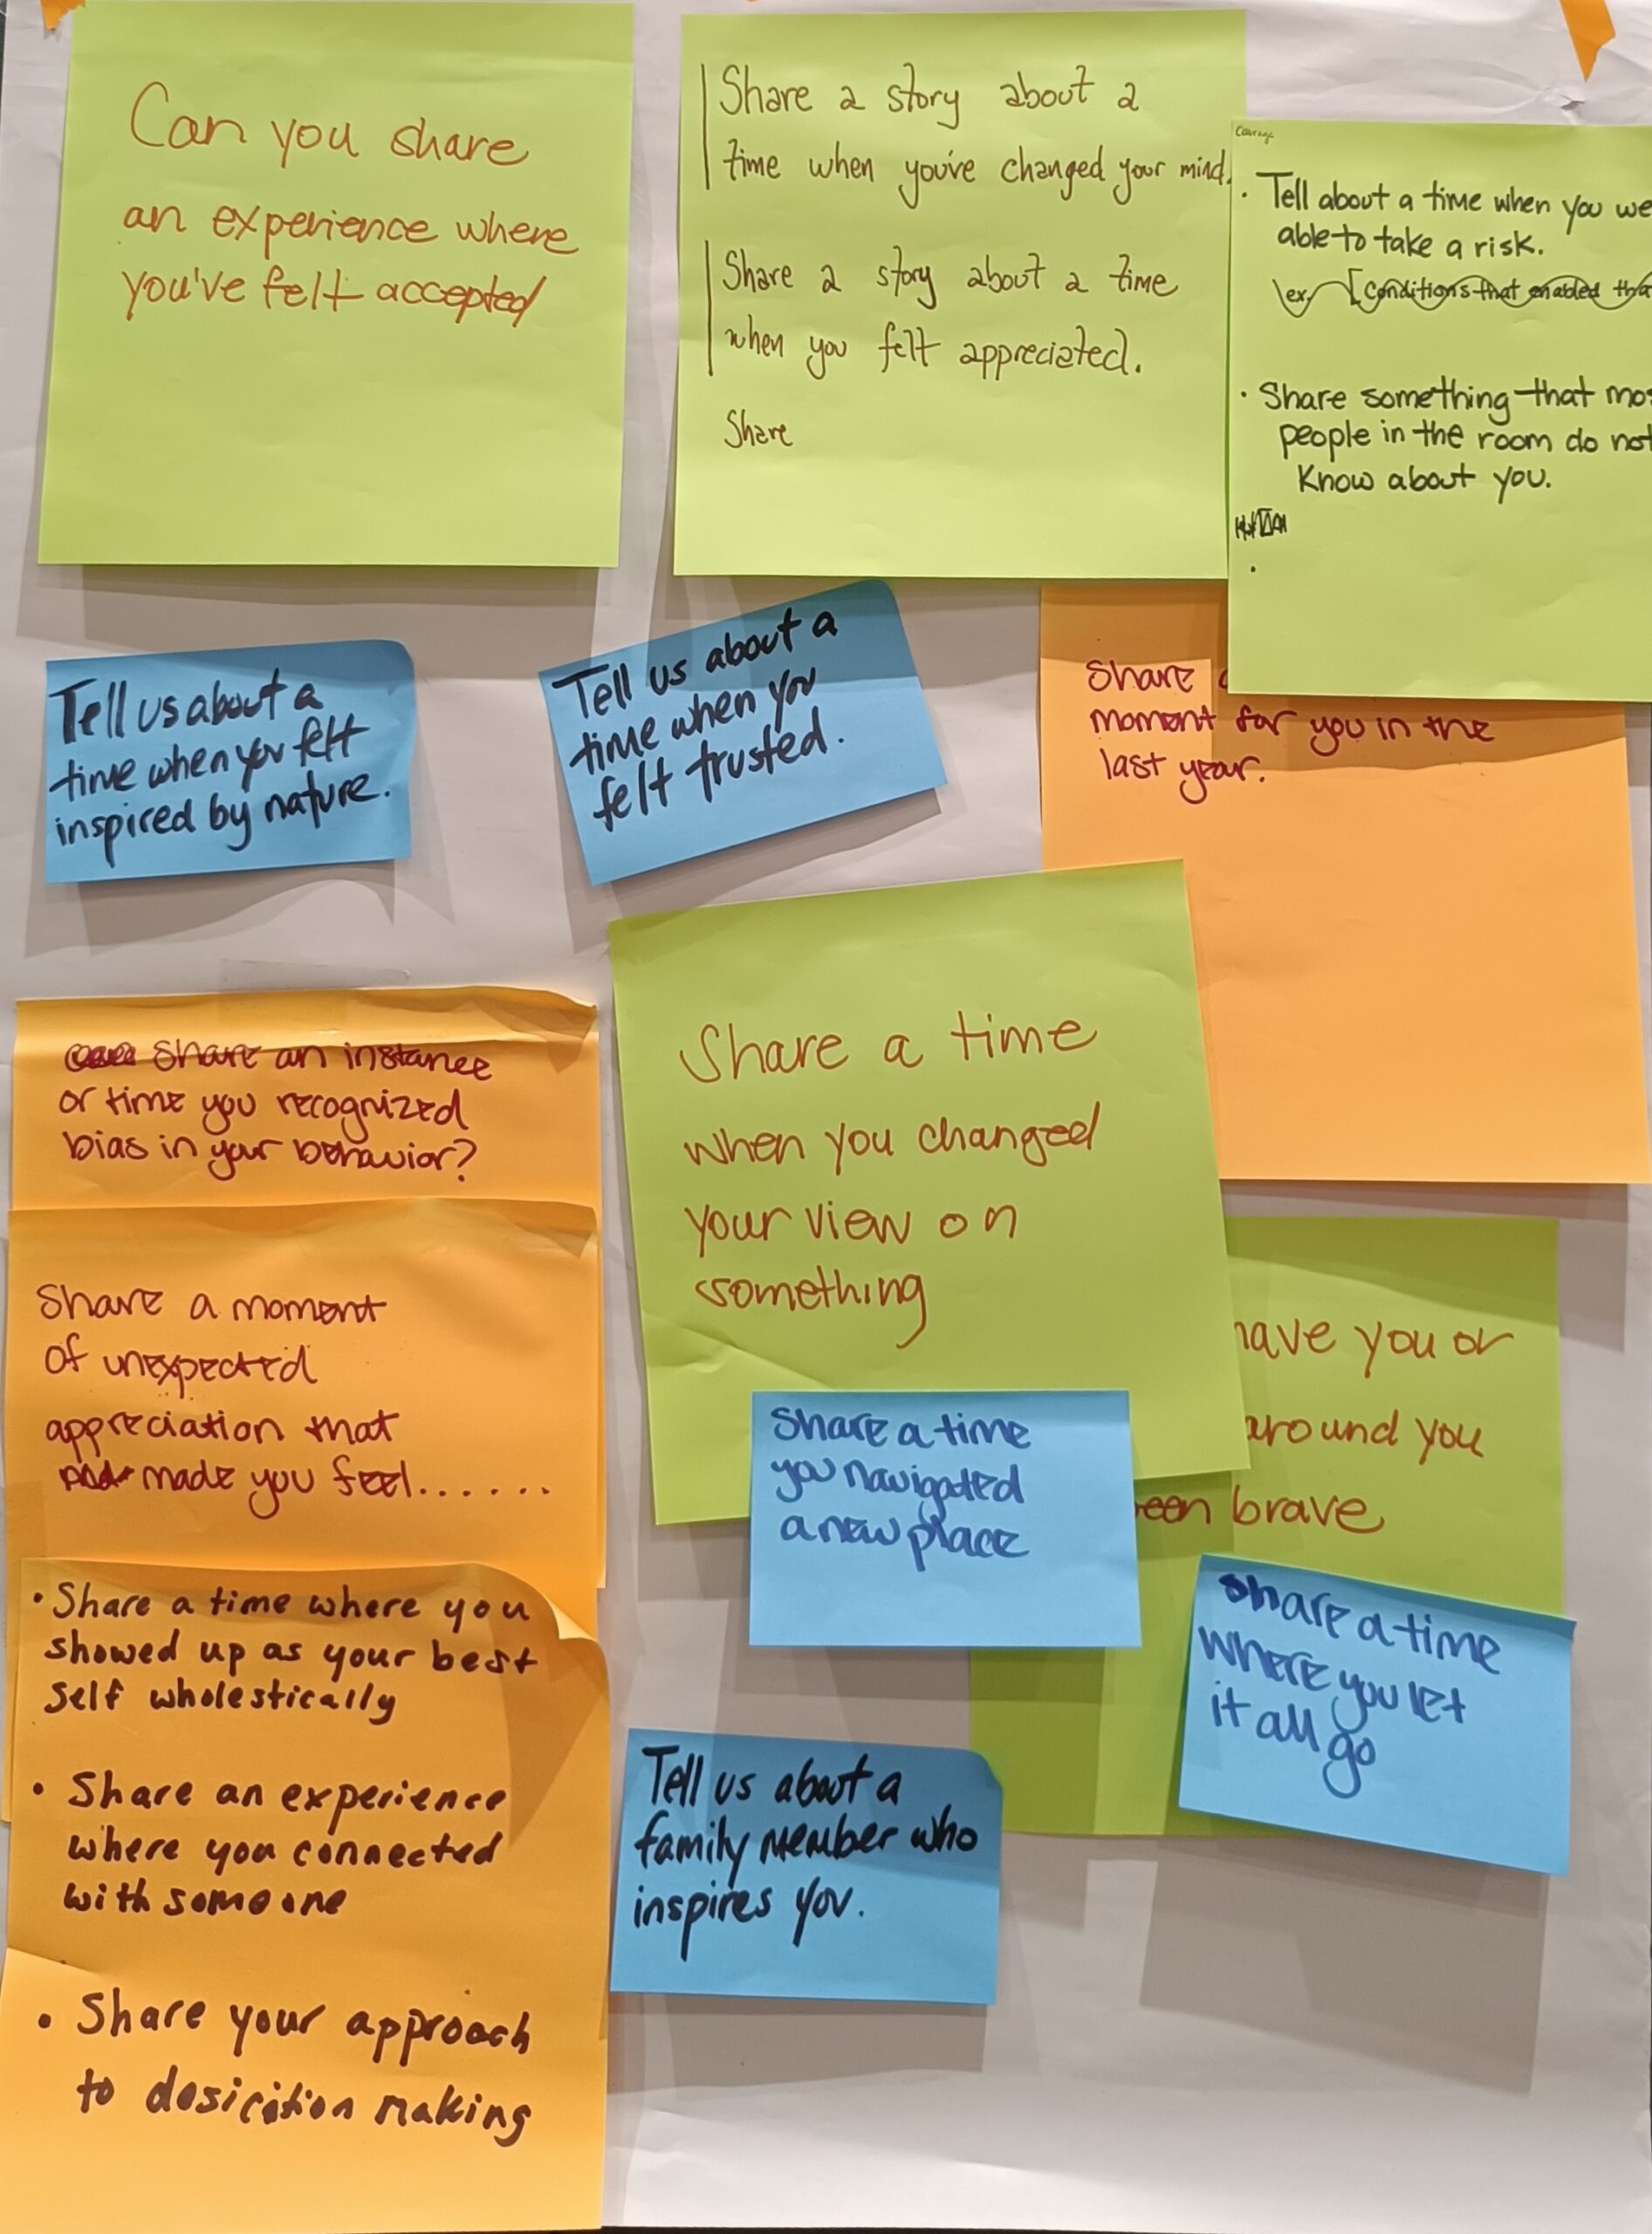 Can you share
an experience where
you've felt accepted
Share a story about a
time when you've changed your mind.
Share a story about a time
when you felt appreciated.
Share
Courage
· Tell about a time when you we
able to take a risk.
ex. [Conditions that enabled tha
· Share something that mos
people in the room do not
Know about you.
Tell us about a
time when you felt
inspired by nature.
Tell us about a
time when you
felt trusted.
Share
moment for you in the
last year.
Share an instance
or time you recognized
bias in your behavior?
Share a moment
of unexpected
appreciation that
made you feel......
· Share a time where you
showed up as your best
self wholestically
· Share an experience
where you connected
with someone
· Share your approach
to desicition making
Share a time
when you changed
your view on
something
have you or
around you
een brave
Share a time
you navigated
a new place
Share a time
where you let
it all go
Tell us about a
family member who
inspires you.